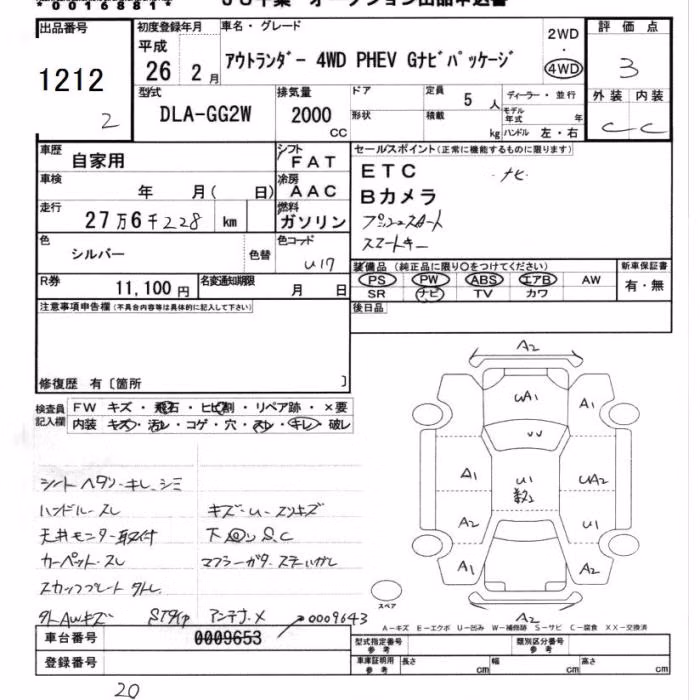 *00168814*
出品番号
1212
2
初度登録年月
平成
26 2月
車名・グレード
アウトランダー 4WD PHEV Gナビパッケージ
2WD
・
4WD
評価点
3
外装 内装
C C
型式
DLA-GG2W
排気量
2000
CC
ドア
形状
定員 5 人
積載 kg
ディーラー・並行
モデル年式 年
ハンドル 左・右
車歴
自家用
シフト
FAT
車検
年 月( 日)
冷房
AAC
走行
27万6千228 km
燃料
ガソリン
色
シルバー
色替
色コード
U17
R券
11,100円
名変通知期限
月 日
セールスポイント(正常に機能するものに限ります)
ETC ・ナビ
Bカメラ
プッシュスタート
スマートキー
装備品 (純正品に限り○をつけてください)
PS PW ABS エアB AW
SR ナビ TV カワ
新車保証書
有・無
後日品
注意事項申告欄(不具合内容等は具体的に記入して下さい)
修復歴 有〔箇所 〕
検査員記入欄
FW キズ・飛石・ヒビ割・リペア跡・×要
内装 キズ・汚レ・コゲ・穴・スレ・キレ・破レ
シート ヘタリ・キレ、シミ
ハンドル・スレ
キズ・U・スリキズ
天井モニター取付
下回り S.C
カーペット・スレ
マフラーガタ・ステーハガレ
スカッフプレート外レ
外AWキズ
STタイヤ
アンテナ・メ
0009643
A2
UA1
A1
VV
A1
U1
UA2
A2
U1
A1
A2
A2
スペア
A-キズ E-エクボ U-凹み W-補修跡 S-サビ C-腐食 XX-交換済
車台番号
0009653
登録番号
型式指定番号
参考
類別区分番号
参考
車庫証明用
参考
長さ cm
幅 cm
高さ cm
20